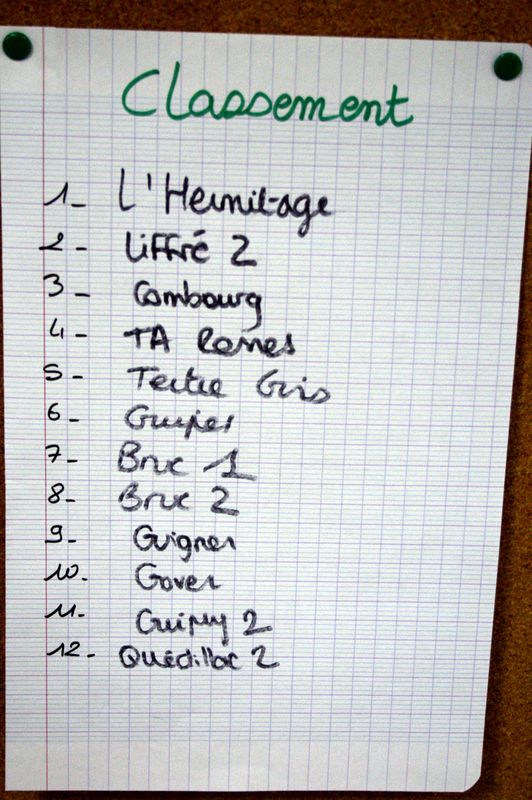 Classement
1- L'Hermitage
2- Liffré 2
3- Combourg
4- TA Rennes
5- Tertre Gris
6-
7- Bruc 1
8- Bruc 2
9- Guignen
10- Goven
11- 2
12- Quédillac 2